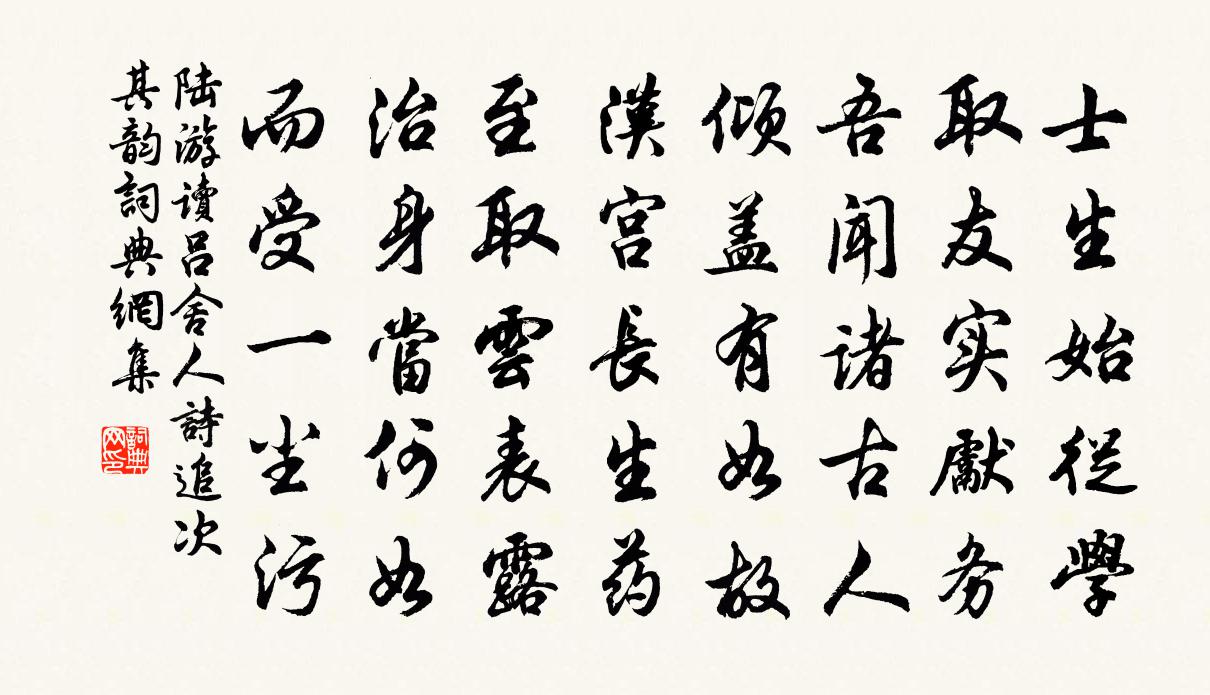 士生始從學
取友实獻务
吾闻諸古人
倾盖有如故
漢宫長生药
至取雲表露
治身當何如
而受一尘污
陆游讀吕舍人詩追次
其韵詞典網集
詞典网印